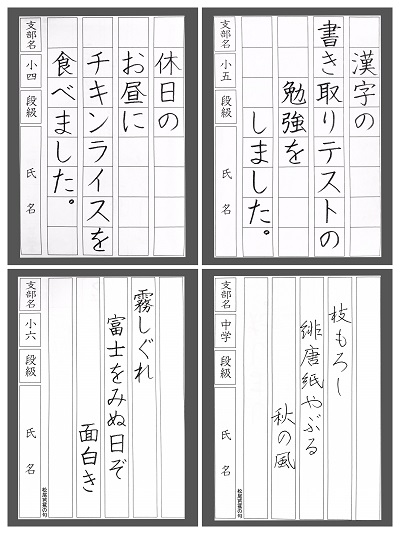 休日の
お昼に
チキンライスを
食べました。
支部名
小四
段級
氏名
漢字の
書き取りテストの
勉強を
しました。
支部名
小五
段級
氏名
霧しぐれ
富士をみぬ日ぞ
面白き
松尾芭蕉の句
支部名
小六
段級
氏名
枝もろし
緋唐紙やぶる
秋の風
松尾芭蕉の句
支部名
中学
段級
氏名